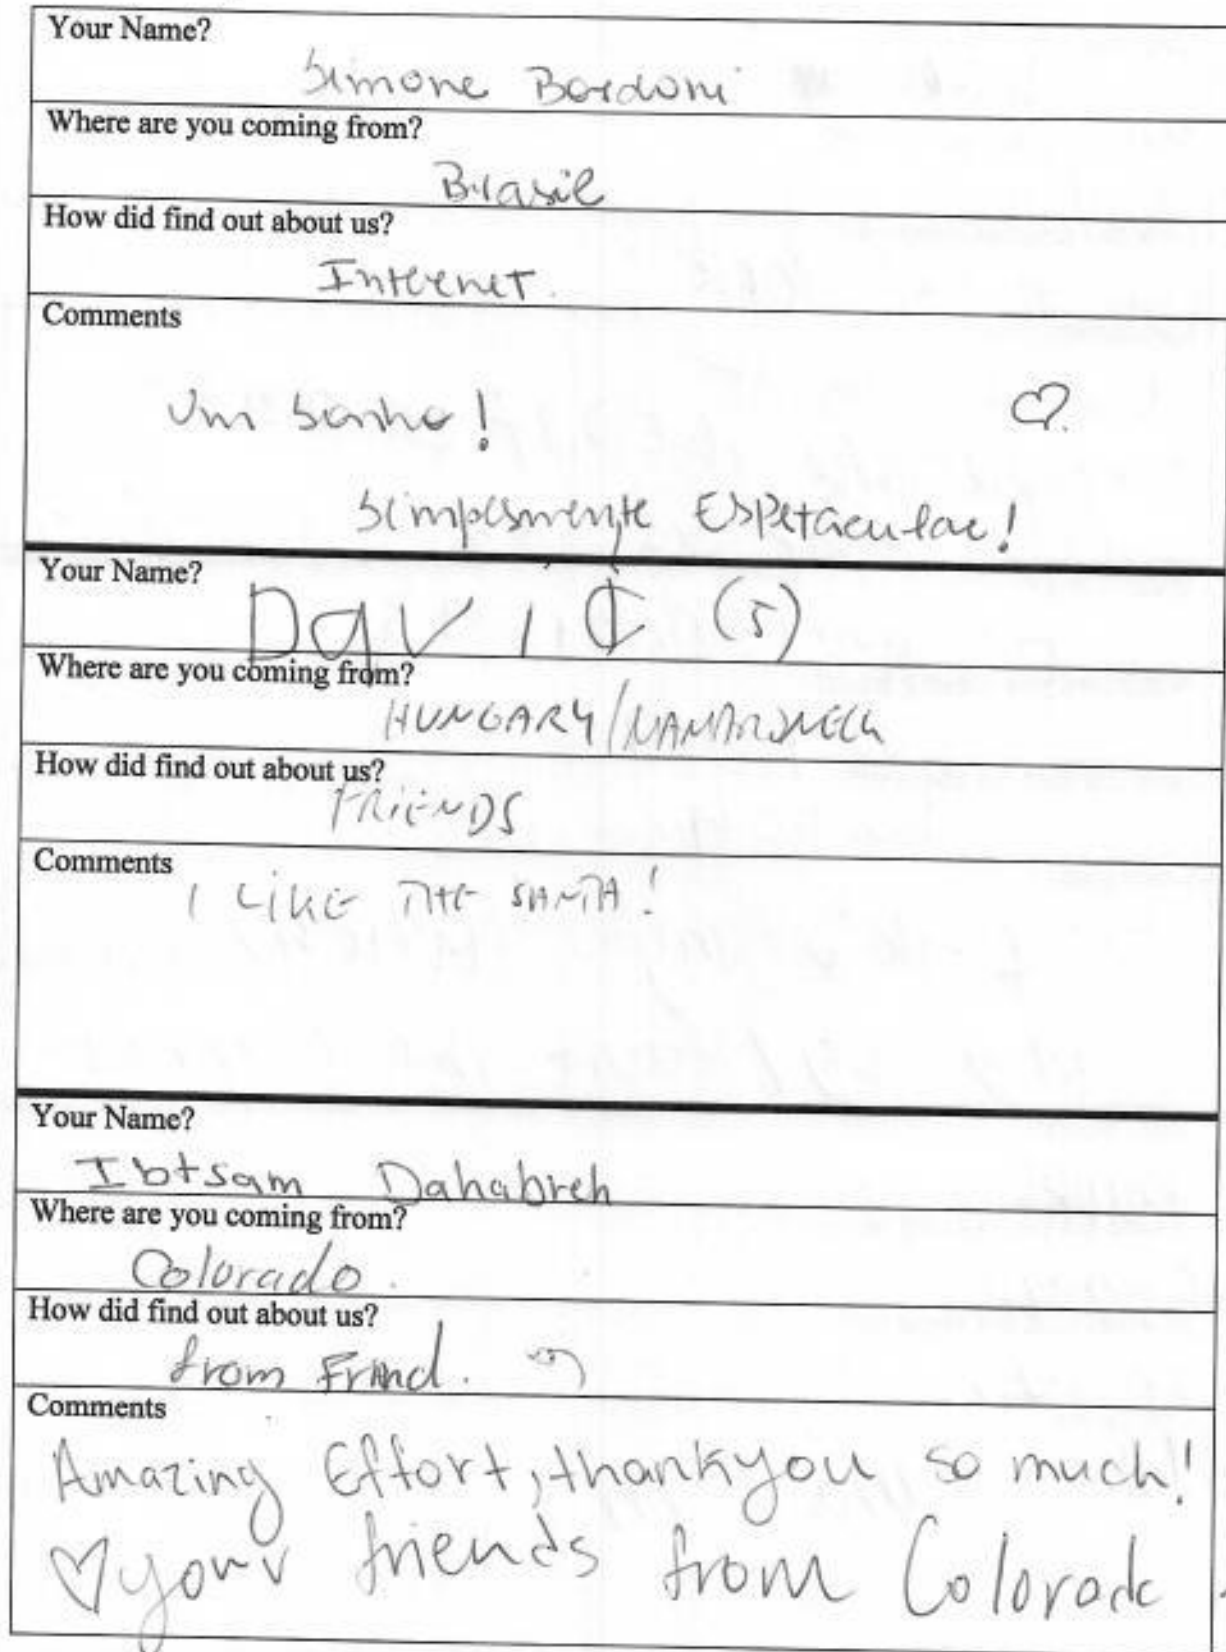 Your Name?
Simone Bordoni
Where are you coming from?
Brasil
How did find out about us?
Internet.
Comments
Um sonho!
Simplesmente Espetacular!
Your Name?
David (5)
Where are you coming from?
HUNGARY/MAMARONECK
How did find out about us?
FRIENDS
Comments
I LIKE THE SANTA!
Your Name?
Ibtsam Dahabreh
Where are you coming from?
Colorado.
How did find out about us?
from Frind.
Comments
Amazing Effort, thankyou so much!
♡ your friends from Colorado.